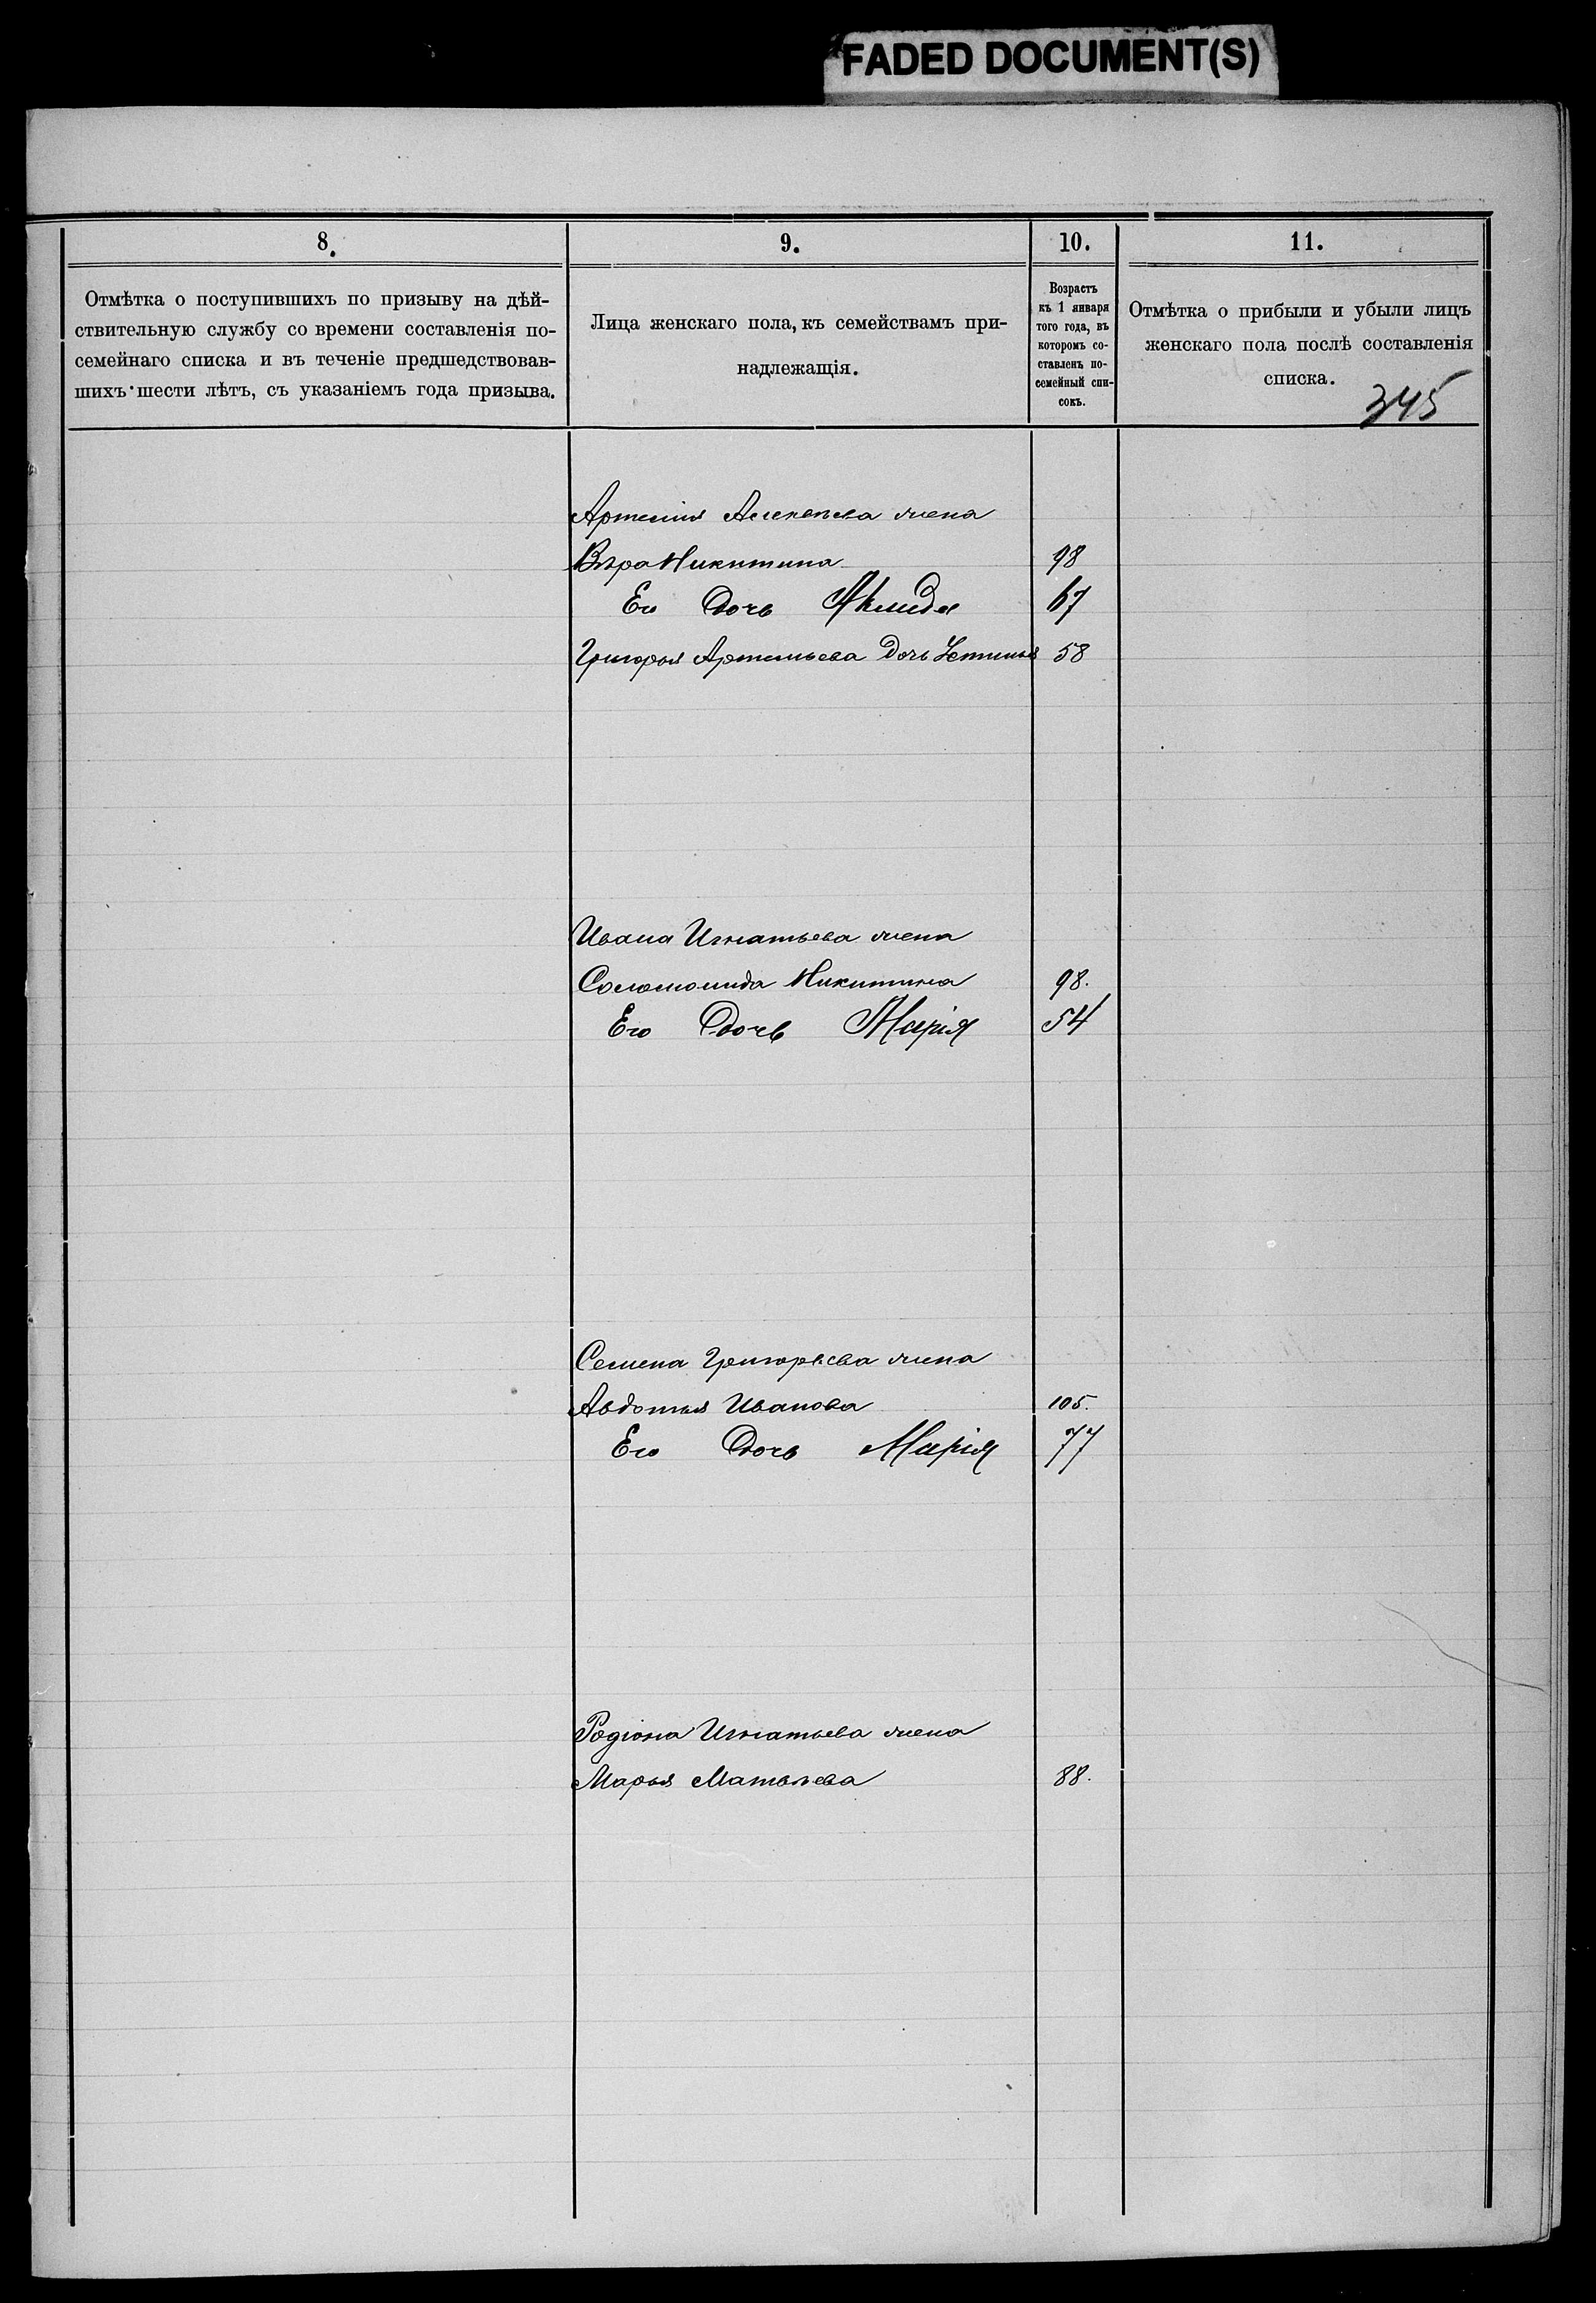 FADED DOCUMENT(S)
8. 9. 10. 11.
Отмѣтка о поступившихъ по призыву на дѣй-
ствительную службу со времени составленія по-
семейнаго списка и въ теченіе предшедствовав-
шихъ шести лѣтъ, съ указаніемъ года призыва.
Лица женскаго пола, къ семействамъ при-
надлежащія.
Возрастъ
къ 1 января
того года, въ
которомъ со-
ставленъ по-
семейный спи-
сокъ.
Отмѣтка о прибыли и убыли лицъ
женскаго пола послѣ составленія
списка.
345
Артемія Алексѣева жена
Вѣра Никитина 98
Его Дочь 67
Григорья Артемьева Дочь Устинья 58
Ивана Игнатьева жена
Соломонида Никитина 98.
Его Дочь Марія 54
Семена Григорьева жена
Авдотья Иванова 105.
Его Дочь Марія 77
Родіона Игнатьева жена
Марья Матвѣева 88.